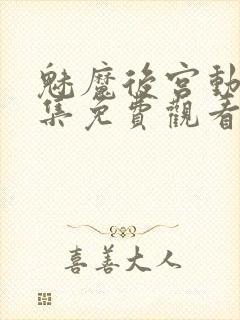 魅魔後宮動
集免費觀看
喜善大人